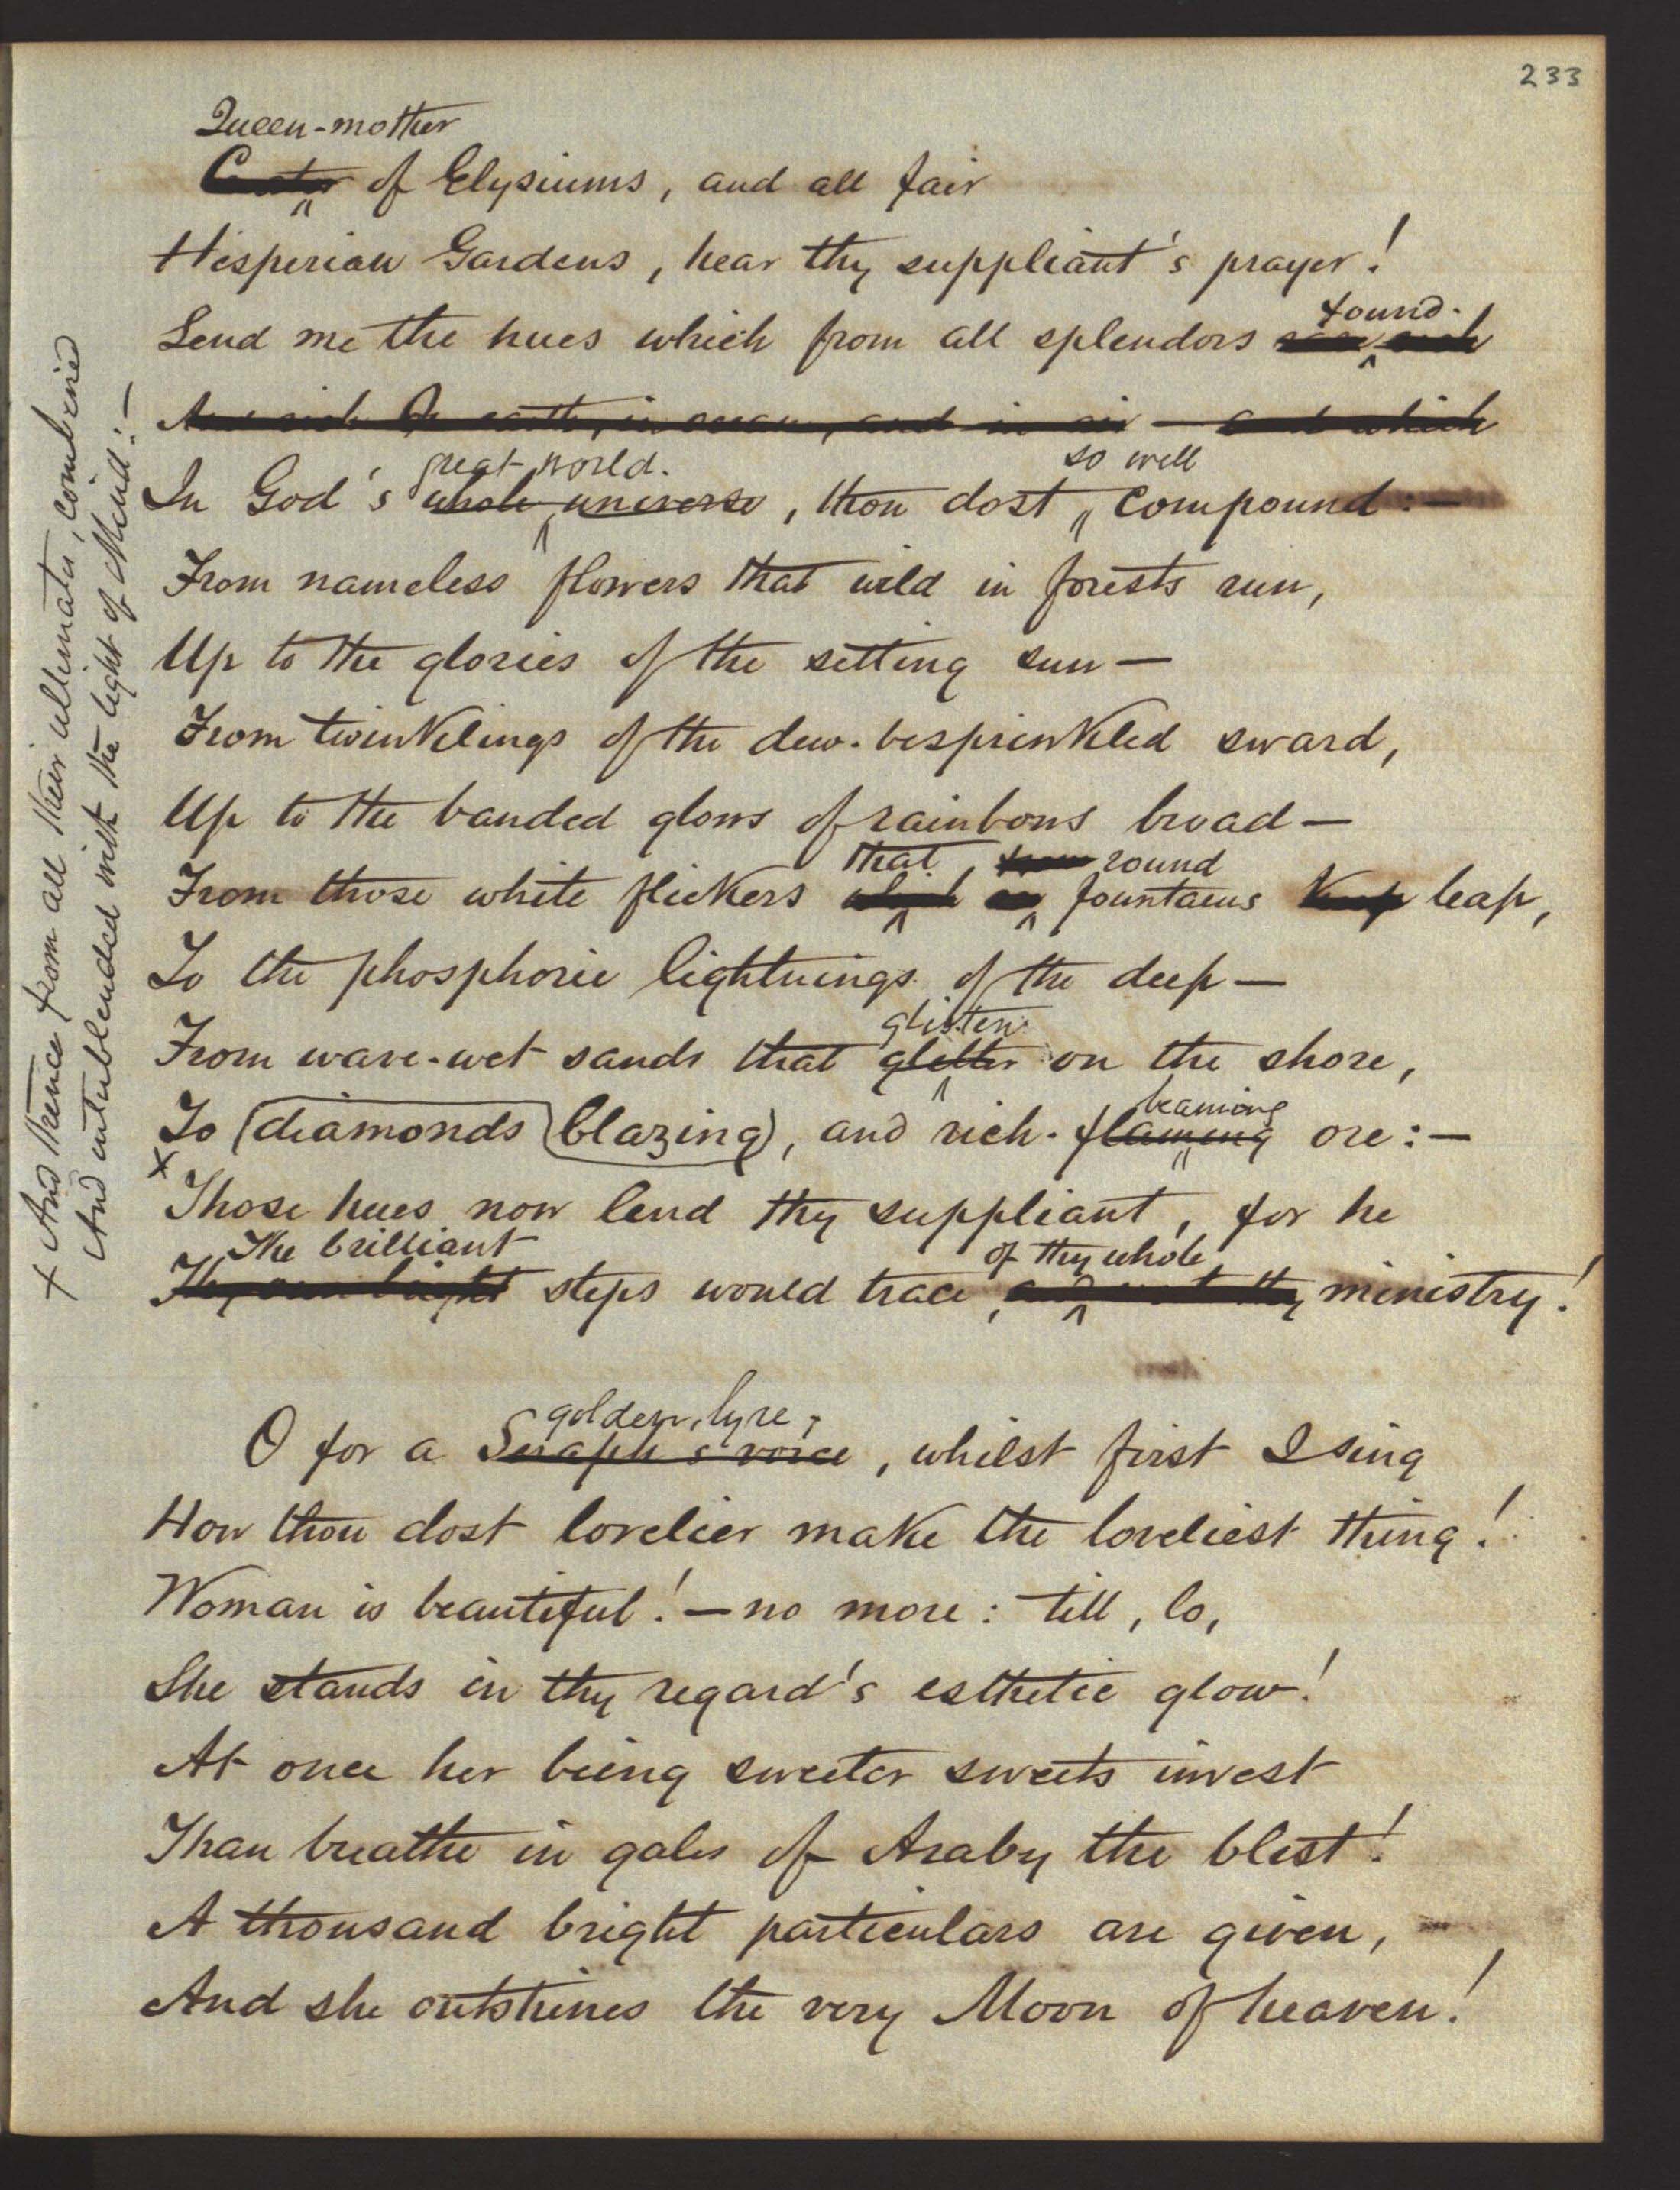 233
Queen-mother
of Elysiums, and all fair
Hesperian Gardens, hear thy suppliant's prayer!
found
Lend me the hues which from all splendors
and which
great world.
so well
In God's whole universe, thou dost compound:—
From nameless flowers that wild in forests run,
Up to the glories of the setting sun—
From twinklings of the dew-besprinkled sward,
Up to the banded glows of rainbows broad—
that round
From those white flickers which fountains leap,
To the phosphoric lightnings of the deep—
glisten
From wave-wet sands that glitter on the shore,
beaming
To diamonds blazing, and rich-flaming ore:—
x Those hues now lend thy suppliant, for he
The brilliant
of thy whole
Thy own bright steps would trace, ministry!
golden lyre,
O for a Seraph's voice, whilst first I sing
How thou dost lovelier make the loveliest thing!
Woman is beautiful!—no more: till, lo,
She stands in thy regard's esthetic glow!
At once her being sweeter sweets invest
Than breathe in gales of Araby the blest!
A thousand bright particulars are given,
And she outshines the very Moon of heaven!
x And thence from all their ultimata, combined
And interblended with the light of Mind:—